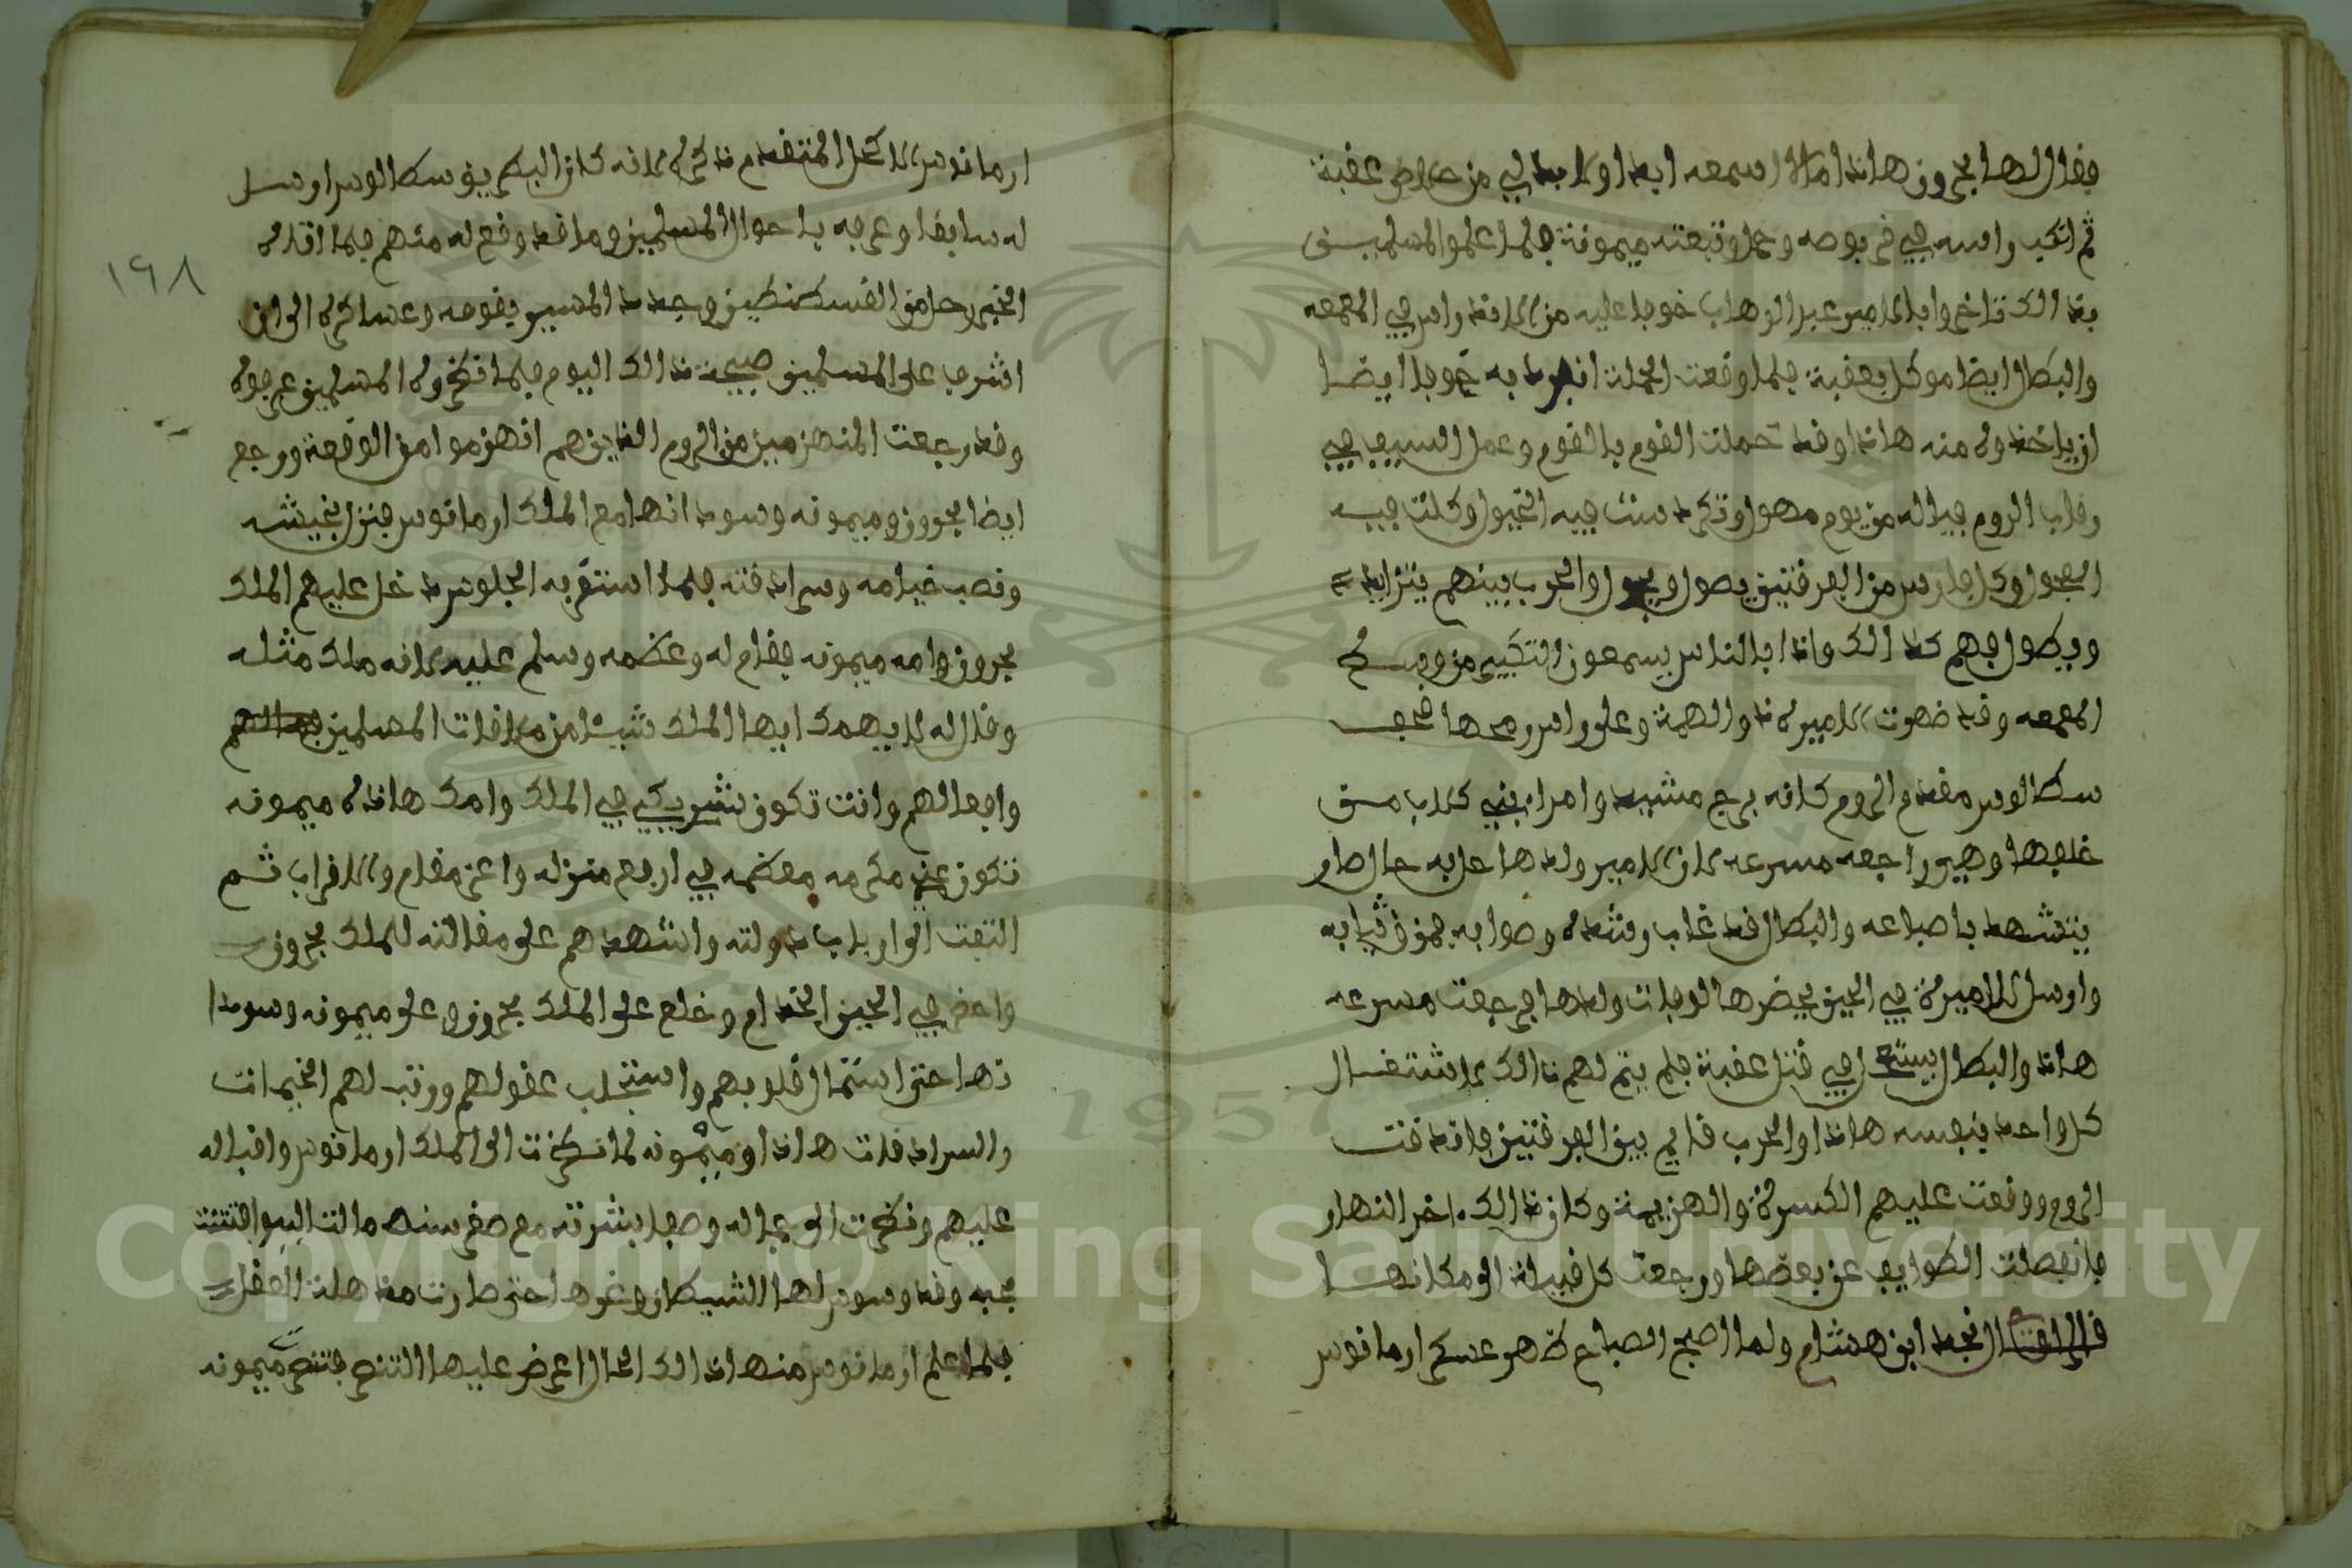 فقال لها بحرون هاذا امر لا اسمعه ابدا ولا بد لي من خلاص عقبة
ثم انكب راسه في قربوصه وحمل وتبعته ميمونة فلما علموا المسلمين
بذالك تاخروا بالامير عبد الوهاب خوفا عليه من الانفراد في المعمعه
والبطال ايضا موكل بعقبة فلما وقعت الحملة انفرد به خوفا ايضا
ان ياخذوه منه هاذا وقد حملت القوم بالقوم وعمل السيف في
رقاب الروم فياله من يوم مهول وتكردست فيه الخيول وكلت فيه
الفحول وكل فارس من الفرقتين يصول ويجول والحرب بينهم يتزايد
ويطول فهم كذالك واذا بالناس يسمعون التكبير من وسط
المعمعه وقد ظهرت الاميرة ذوالهمة وعلى راس رمحها قحف
سطالوس مقدم الروم كانه برج مشيد وامراء بني كلاب من
خلفها وهي راجعه مسرعه لان الامير ولدها اعلا به حال صار
يتشهد باصباعه والبطال قد غاب رشده وصوابه يمزق ثيابه
وارسل للاميرة في الحين يحضرها لوفات ولدها فرجعت مسرعه
هاذا والبطال يستعجل في قتل عقبة فلم يتم لهم ذالك لاشتغال
كل واحد بنفسه هاذا والحرب قايم بين الفرقتين فانذقت
الروم ووقعت عليهم الكسرة والهزيمة وكان ذالك اخر النهار
فانفصلت الطوايف عن بعضها ورجعت كل قبيلة الى مكانها
قال نجد ابن هشام ولما اصبح الصباح ظهر عسكر ارمانوس
ارمانوس الاكحل المتقدم ذكره لانه كان البطريق سطالوس ارسل
له سابقا وعرفه باحوال المسلمين وما قد وقع له منهم فلما اقراه
الخبر رحل من القسطنطين وجد المسير بقومه وعساكره الى ان
اشرف على المسلمين صبيحة ذالك اليوم فلما نظروه المسلمين عرفوه
وقد رجعت المنهزمين من الروم الذين هم انهزموا من الوقعة ورجع
ايضا بحرون وميمونه وسودانها مع الملك ارمانوس فنزل بجيشه
ونصب خيامه وسرادقته فلما استقر به الجلوس دخل عليهم الملك
بحرون وامه ميمونه فقام له وعظمه وسلم عليه لانه ملك مثله
وقال له لا يهمك ايها الملك شيئا من ملاقات المسلمين
وافعالهم وانت تكون شريكي في الملك وامك هاذه ميمونه
تكون عندي مكرمه معظمه في ارفع منزله واعز مقام والاقراب ثم
التفت الى ارباب دولته واشهدهم على مقالته للملك بحرون
واحضر في الحين الخدام وخلع على الملك بحرون وعلى ميمونه وسودا
نها حتى استمال قلوبهم واستجلب عقولهم ورتب لهم الخيمات
والسرادقات هاذا وميمونه لما نظرت الى الملك ارمانوس واقباله
عليهم ونظرت الى جماله وصفا بشرته مع صغر سنه مالت اليه وافتتنت
بحبه وقد وسوس لها الشيطان وغوها حتى صارت مذهلة العقل
فلما علم ارمانوس منها ذالك الحال اعرض عليها التنصر فتنصرت ميمونه
١٩٨
Copyright © King Saud University
1957